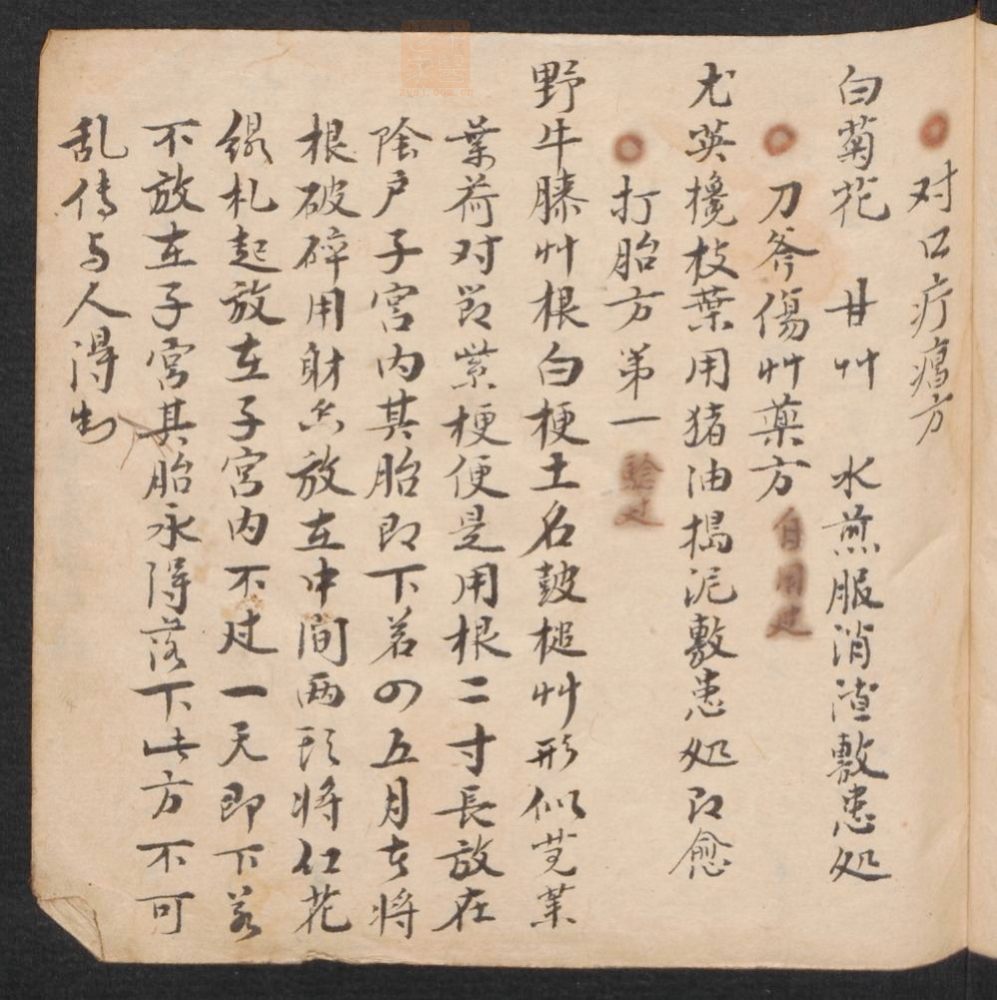 对口疔瘍方
白菊花 甘艸 水煎服消渣敷患处
刀斧傷艸薬方 自用过
尤英櫈枝葉用猪油搗泥敷患处即愈
打胎方第一 验过
野牛膝艸根白梗土名鼓槌艸形似苋菜
葉荷对節紫梗便是用根二寸長放在
陰户子宮内其胎即下若四五月者将
根破碎用射香放在中间两頭将红花
線札起放在子宮内不过一天即下若
不放在子宮其胎永得落下此方不可
乱傳与人得